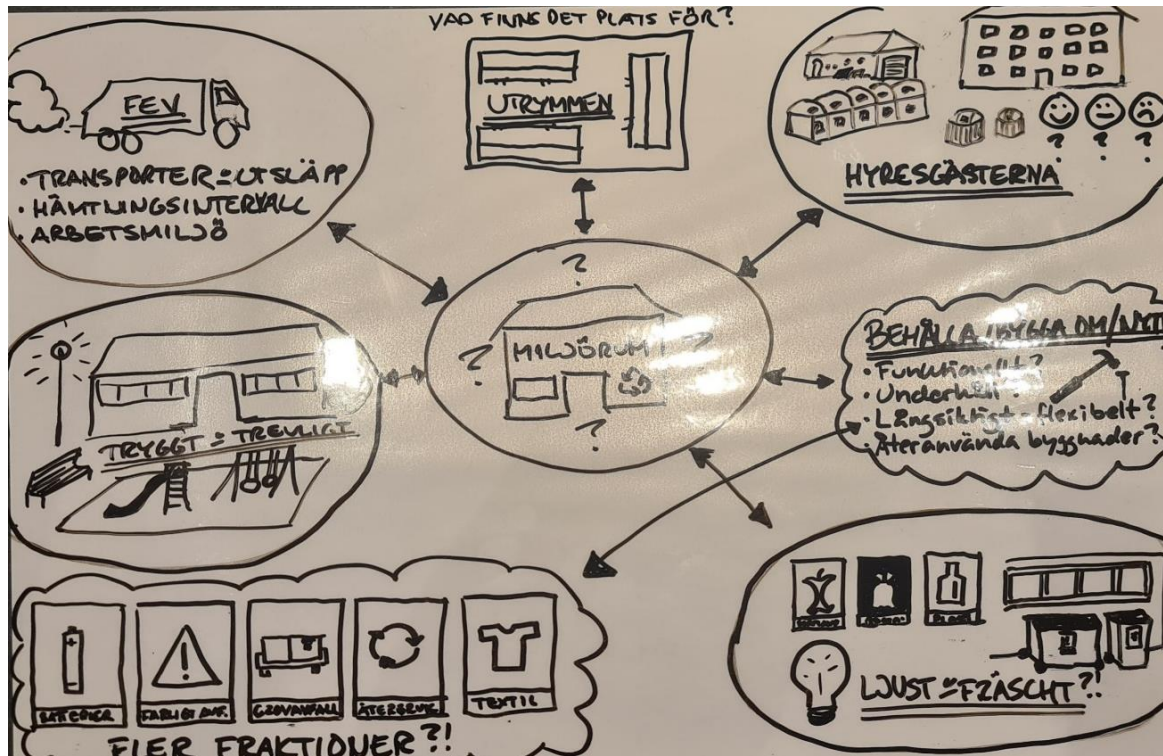 VAD FINNS DET PLATS FÖR?
UTRYMMEN
FEV
• TRANSPORTER = UTSLÄPP
• HÄMTNINGSINTERVALL
• ARBETSMILJÖ
?
?
?
HYRESGÄSTERNA
?
?
MILJÖRUM
?
?
TRYGGT = TREVLIGT
BEHÅLLA/BYGGA OM/NYTT
• Funktionellt?
• Underhåll?
• Långsiktigt - flexibelt?
• Återanvända byggnader?
BATTERIER
FARLIGT AVF.
GROVAVFALL
ÅTERBRUK
TEXTIL
FLER FRAKTIONER?!
LJUST = FRÄSCHT?!